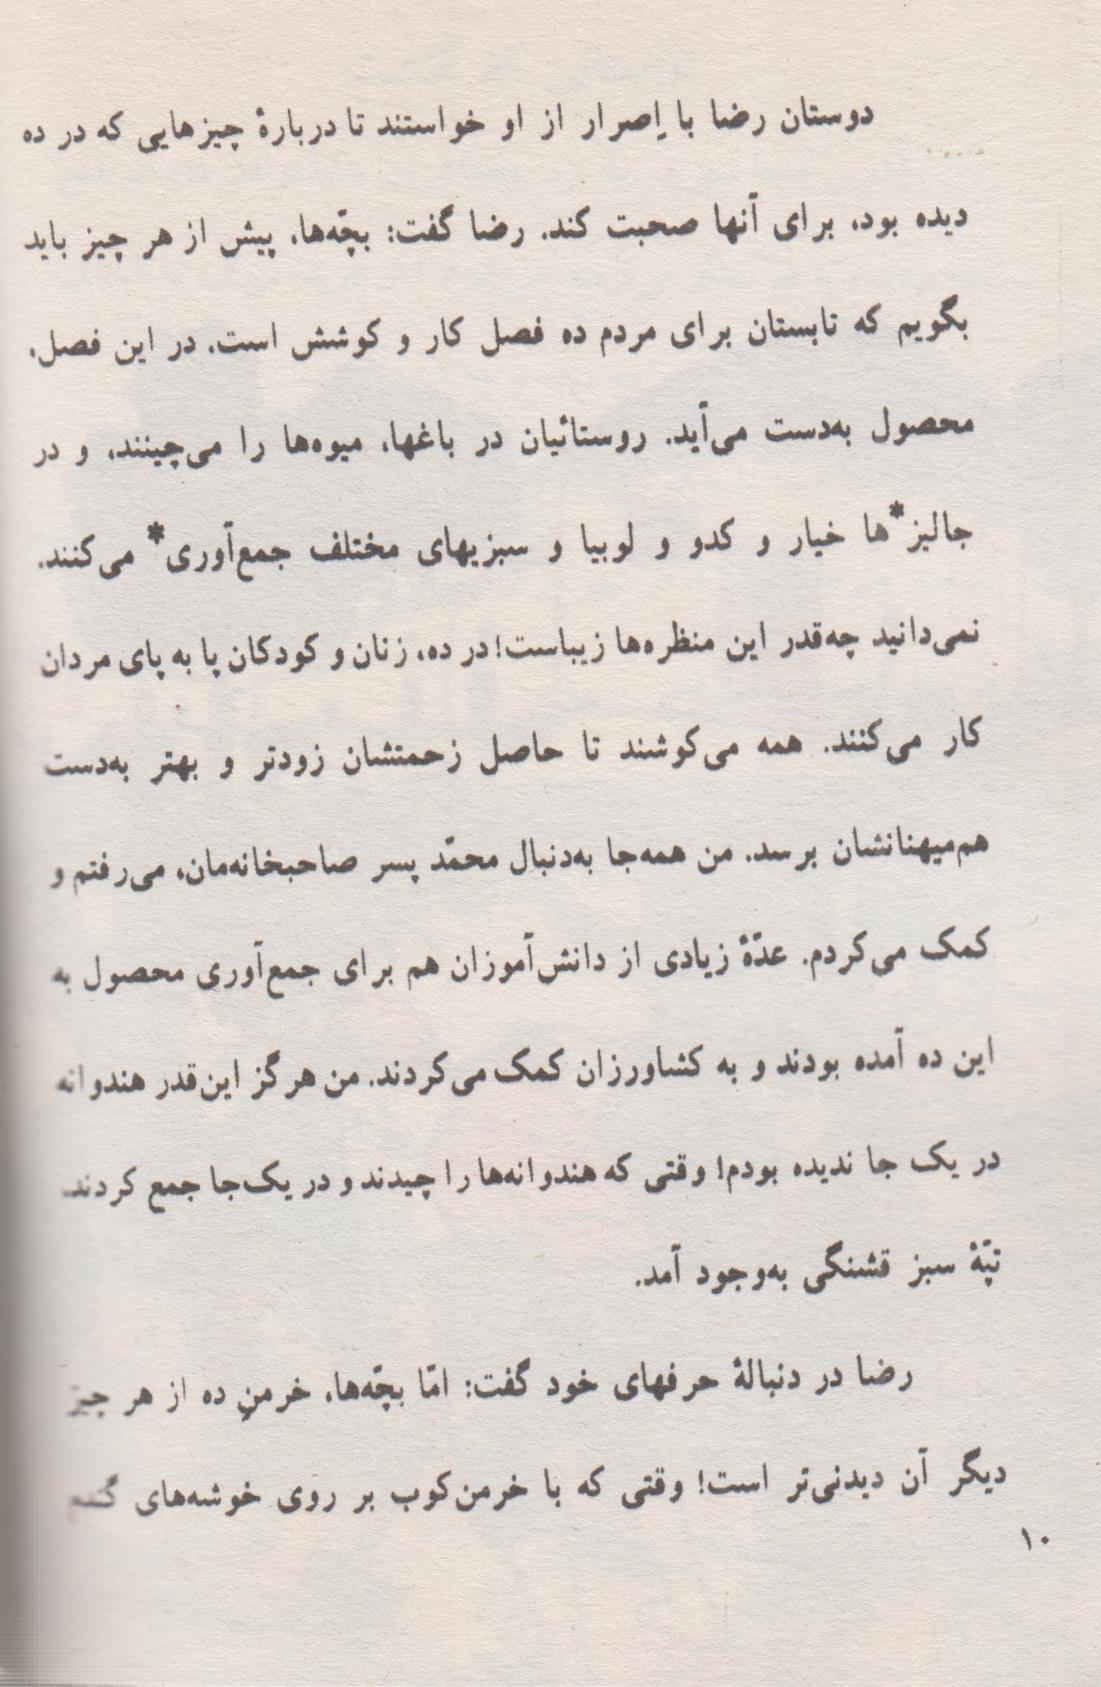 دوستان رضا با اِصرار از او خواستند تا دربارهٔ چیزهایی که در ده
دیده بود، برای آنها صحبت کند. رضا گفت: بچّه‌ها، پیش از هر چیز باید
بگویم که تابستان برای مردم ده فصل کار و کوشش است. در این فصل،
محصول به‌دست می‌آید. روستائیان در باغها، میوه‌ها را می‌چینند، و در
جالیز*ها خیار و کدو و لوبیا و سبزیهای مختلف جمع‌آوری* می‌کنند.
نمی‌دانید چه‌قدر این منظره‌ها زیباست! در ده، زنان و کودکان پا به پای مردان
کار می‌کنند. همه می‌کوشند تا حاصل زحمتشان زودتر و بهتر به‌دست
هم‌میهنانشان برسد. من همه‌جا به‌دنبال محمّد پسر صاحبخانه‌مان، می‌رفتم و
کمک می‌کردم. عدّهٔ زیادی از دانش‌آموزان هم برای جمع‌آوری محصول به
این ده آمده بودند و به کشاورزان کمک می‌کردند. من هرگز این‌قدر هندوانه
در یک جا ندیده بودم! وقتی که هندوانه‌ها را چیدند و در یک‌جا جمع کردند
تپّهٔ سبز قشنگی به‌وجود آمد.
رضا در دنبالهٔ حرفهای خود گفت: امّا بچّه‌ها، خرمنِ ده از هر چیز
دیگر آن دیدنی‌تر است! وقتی که با خرمن‌کوب بر روی خوشه‌های گندم
۱۰